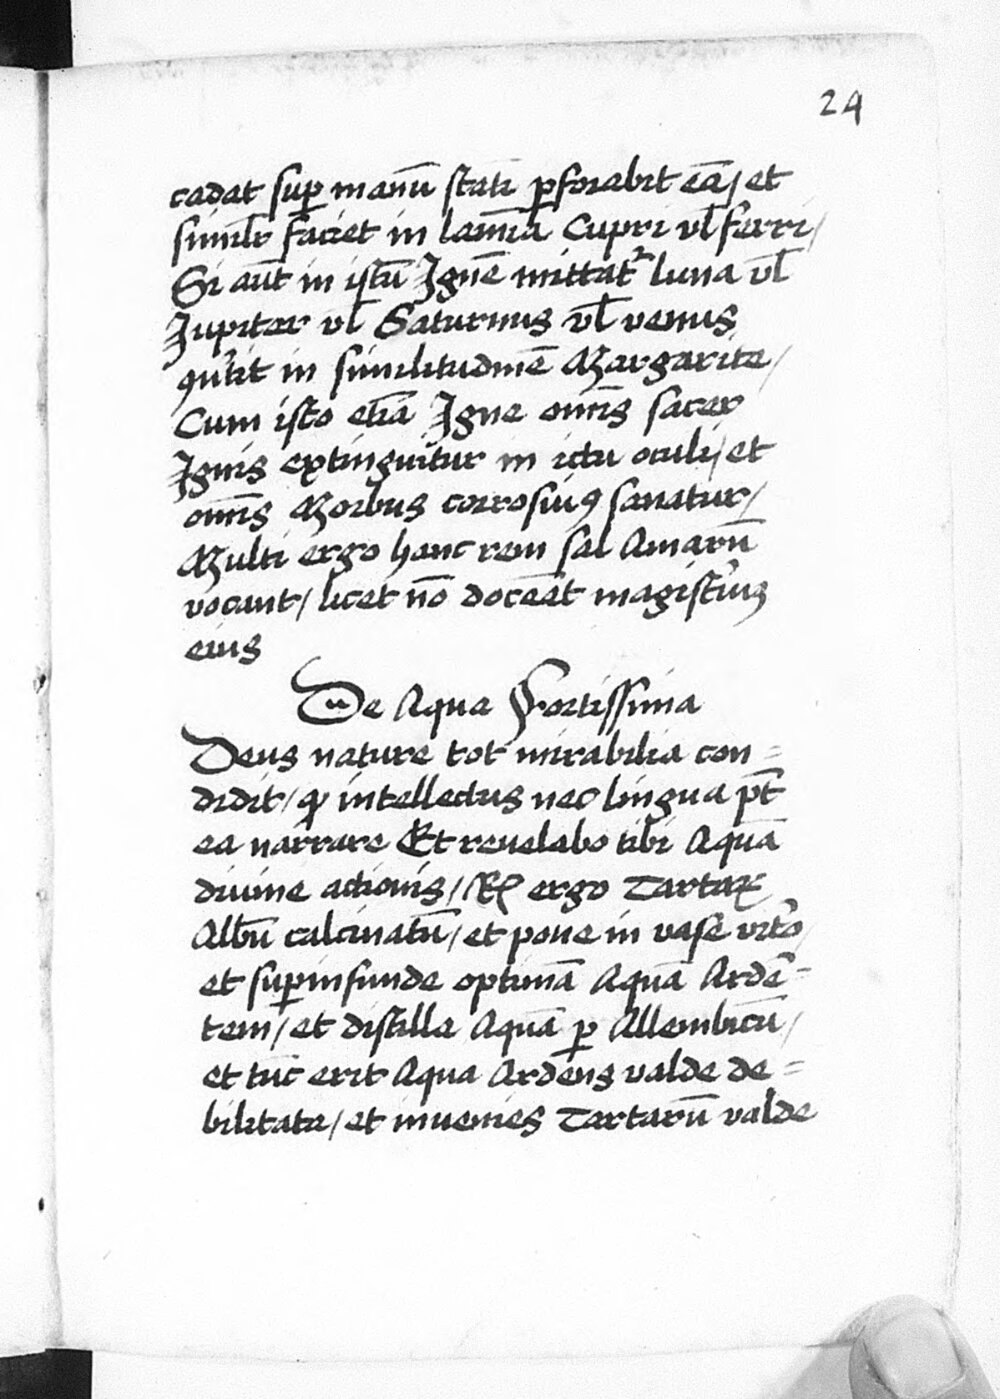 24
cadat sup manū statī pforabit eā, et
simil'r faciet in lamīā Cupri vl ferri/
Si aūt in istū Ignē mittat' luna vl
Iupiter vl Saturnus vl venus
qu'tit in similitudinē Margarite/
Cum isto etiā Igne omīs sacer
Ignis extinguitur in ictu oculi, et
omīs Morbus corrosiuꝰ sanatur/
Multi ergo hanc rem sal Amarū
vocant/ licet nō doceēt magist'iū
eius
De Aqua Fortissima
Deus nature tot mirabilia con=
didit/ qƺ intellectus nec lingua pt̄
ea narrare Et reuelabo tibi Aquā
diuine actionis/ ℞ ergo Tartaꝝ
Albū calcinatū/ et pone in vase vit'o/
et supinfunde optimā Aquā Ardē=
tem/ et distilla Aquā p Allembicū/
et tūc erit Aqua Ardens valde de=
bilitata/ et inuenies Tartarū valde